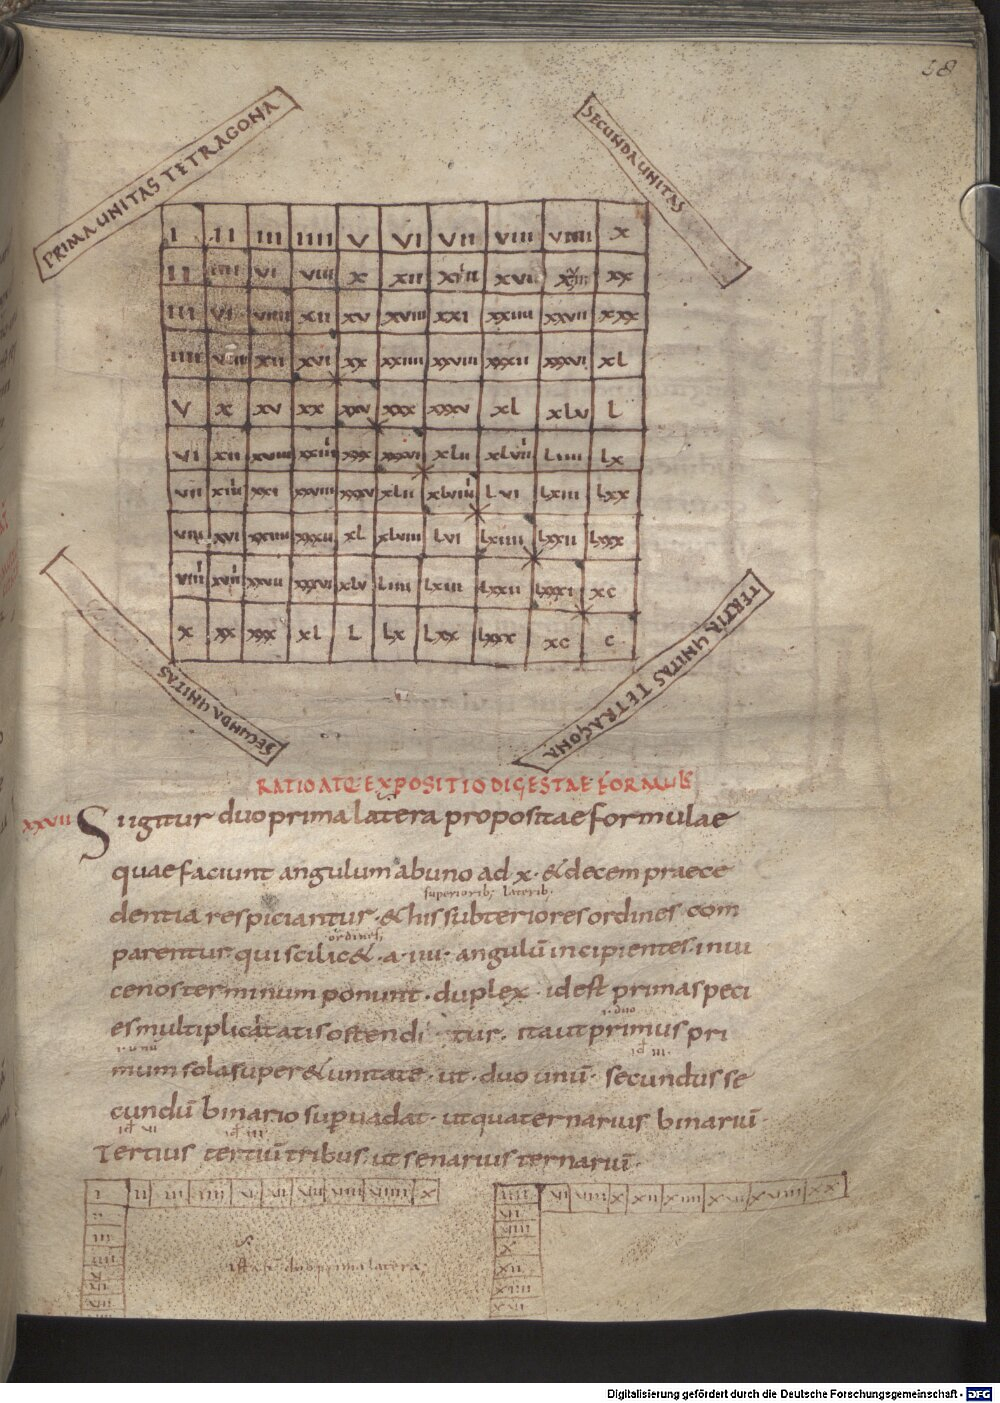 58
PRIMA UNITAS TETRAGONA
SECUNDA UNITAS
I II III IIII V VI VII VIII VIIII X
II IIII VI VIII X XII XIIII XVI XVIII XX
III VI VIIII XII XV XVIII XXI XXIIII XXVII XXX
IIII VIII XII XVI XX XXIIII XXVIII XXXII XXXVI XL
V X XV XX XXV XXX XXXV XL XLV L
VI XII XVIII XXIIII XXX XXXVI XLII XLVIII LIIII LX
VII XIIII XXI XXVIII XXXV XLII XLVIIII LVI LXIII LXX
VIII XVI XXIIII XXXII XL XLVIII LVI LXIIII LXXII LXXX
VIIII XVIII XXVII XXXVI XLV LIIII LXIII LXXII LXXXI XC
X XX XXX XL L LX LXX LXXX XC C
SECUNDA UNITAS
TERTIA UNITAS TETRAGONA
RATIO ATQ· EXPOSITIO DIGESTAE FORMULĘ
XXVII Si igitur duo prima latera propositae formulae
quae faciunt angulum ab uno ad x· & decem praece
superiorib; laterib;
dentia respiciantur· & his subteriores ordines com
ordines
parentur qui scilic& · a· IIII· angulū incipientes· in ui
cenos terminum ponunt· duplex· id est prima speci
es multiplicitatis ostenditur· ita ut primus pri
mum sola super& unitate· ut· duo unū· secundus se
id IIII·
cundū binario supuadat· ut quaternarius binariū·
id VI id III
Tertius tertiū tribus· ut senarius ternariū·
I II III IIII V VI VII VIII VIIII X
IIII VI VIII X XII XIIII XVI XVIII XX
II VI
III VIII
IIII X
V XII
VI XIIII
VII XVI
duo prima latera
Digitalisierung gefördert durch die Deutsche Forschungsgemeinschaft - DFG